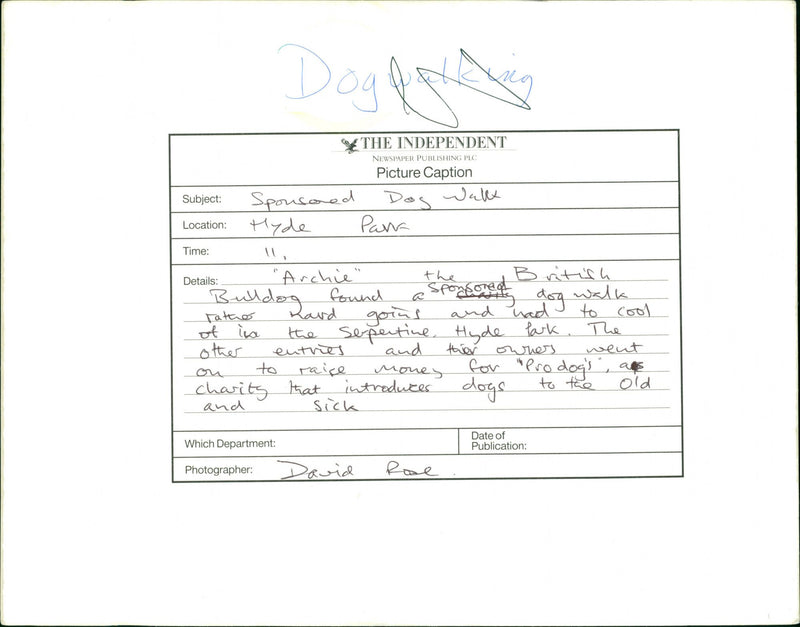 Dogwalking
THE INDEPENDENT
NEWSPAPER PUBLISHING PLC
Picture Caption
Subject: Sponsored Dog Walk
Location: Hyde Park
Time: 11.
Details: "Archie" the British
Bulldog found a Sponsored charity dog walk
rather hard going and had to cool
of in the Serpentine, Hyde Park. The
other entries and thier owners went
on to raise money for "Prodogs", a
charity that introduces dogs to the Old
and sick
Which Department:
Date of
Publication:
Photographer: David Rose.